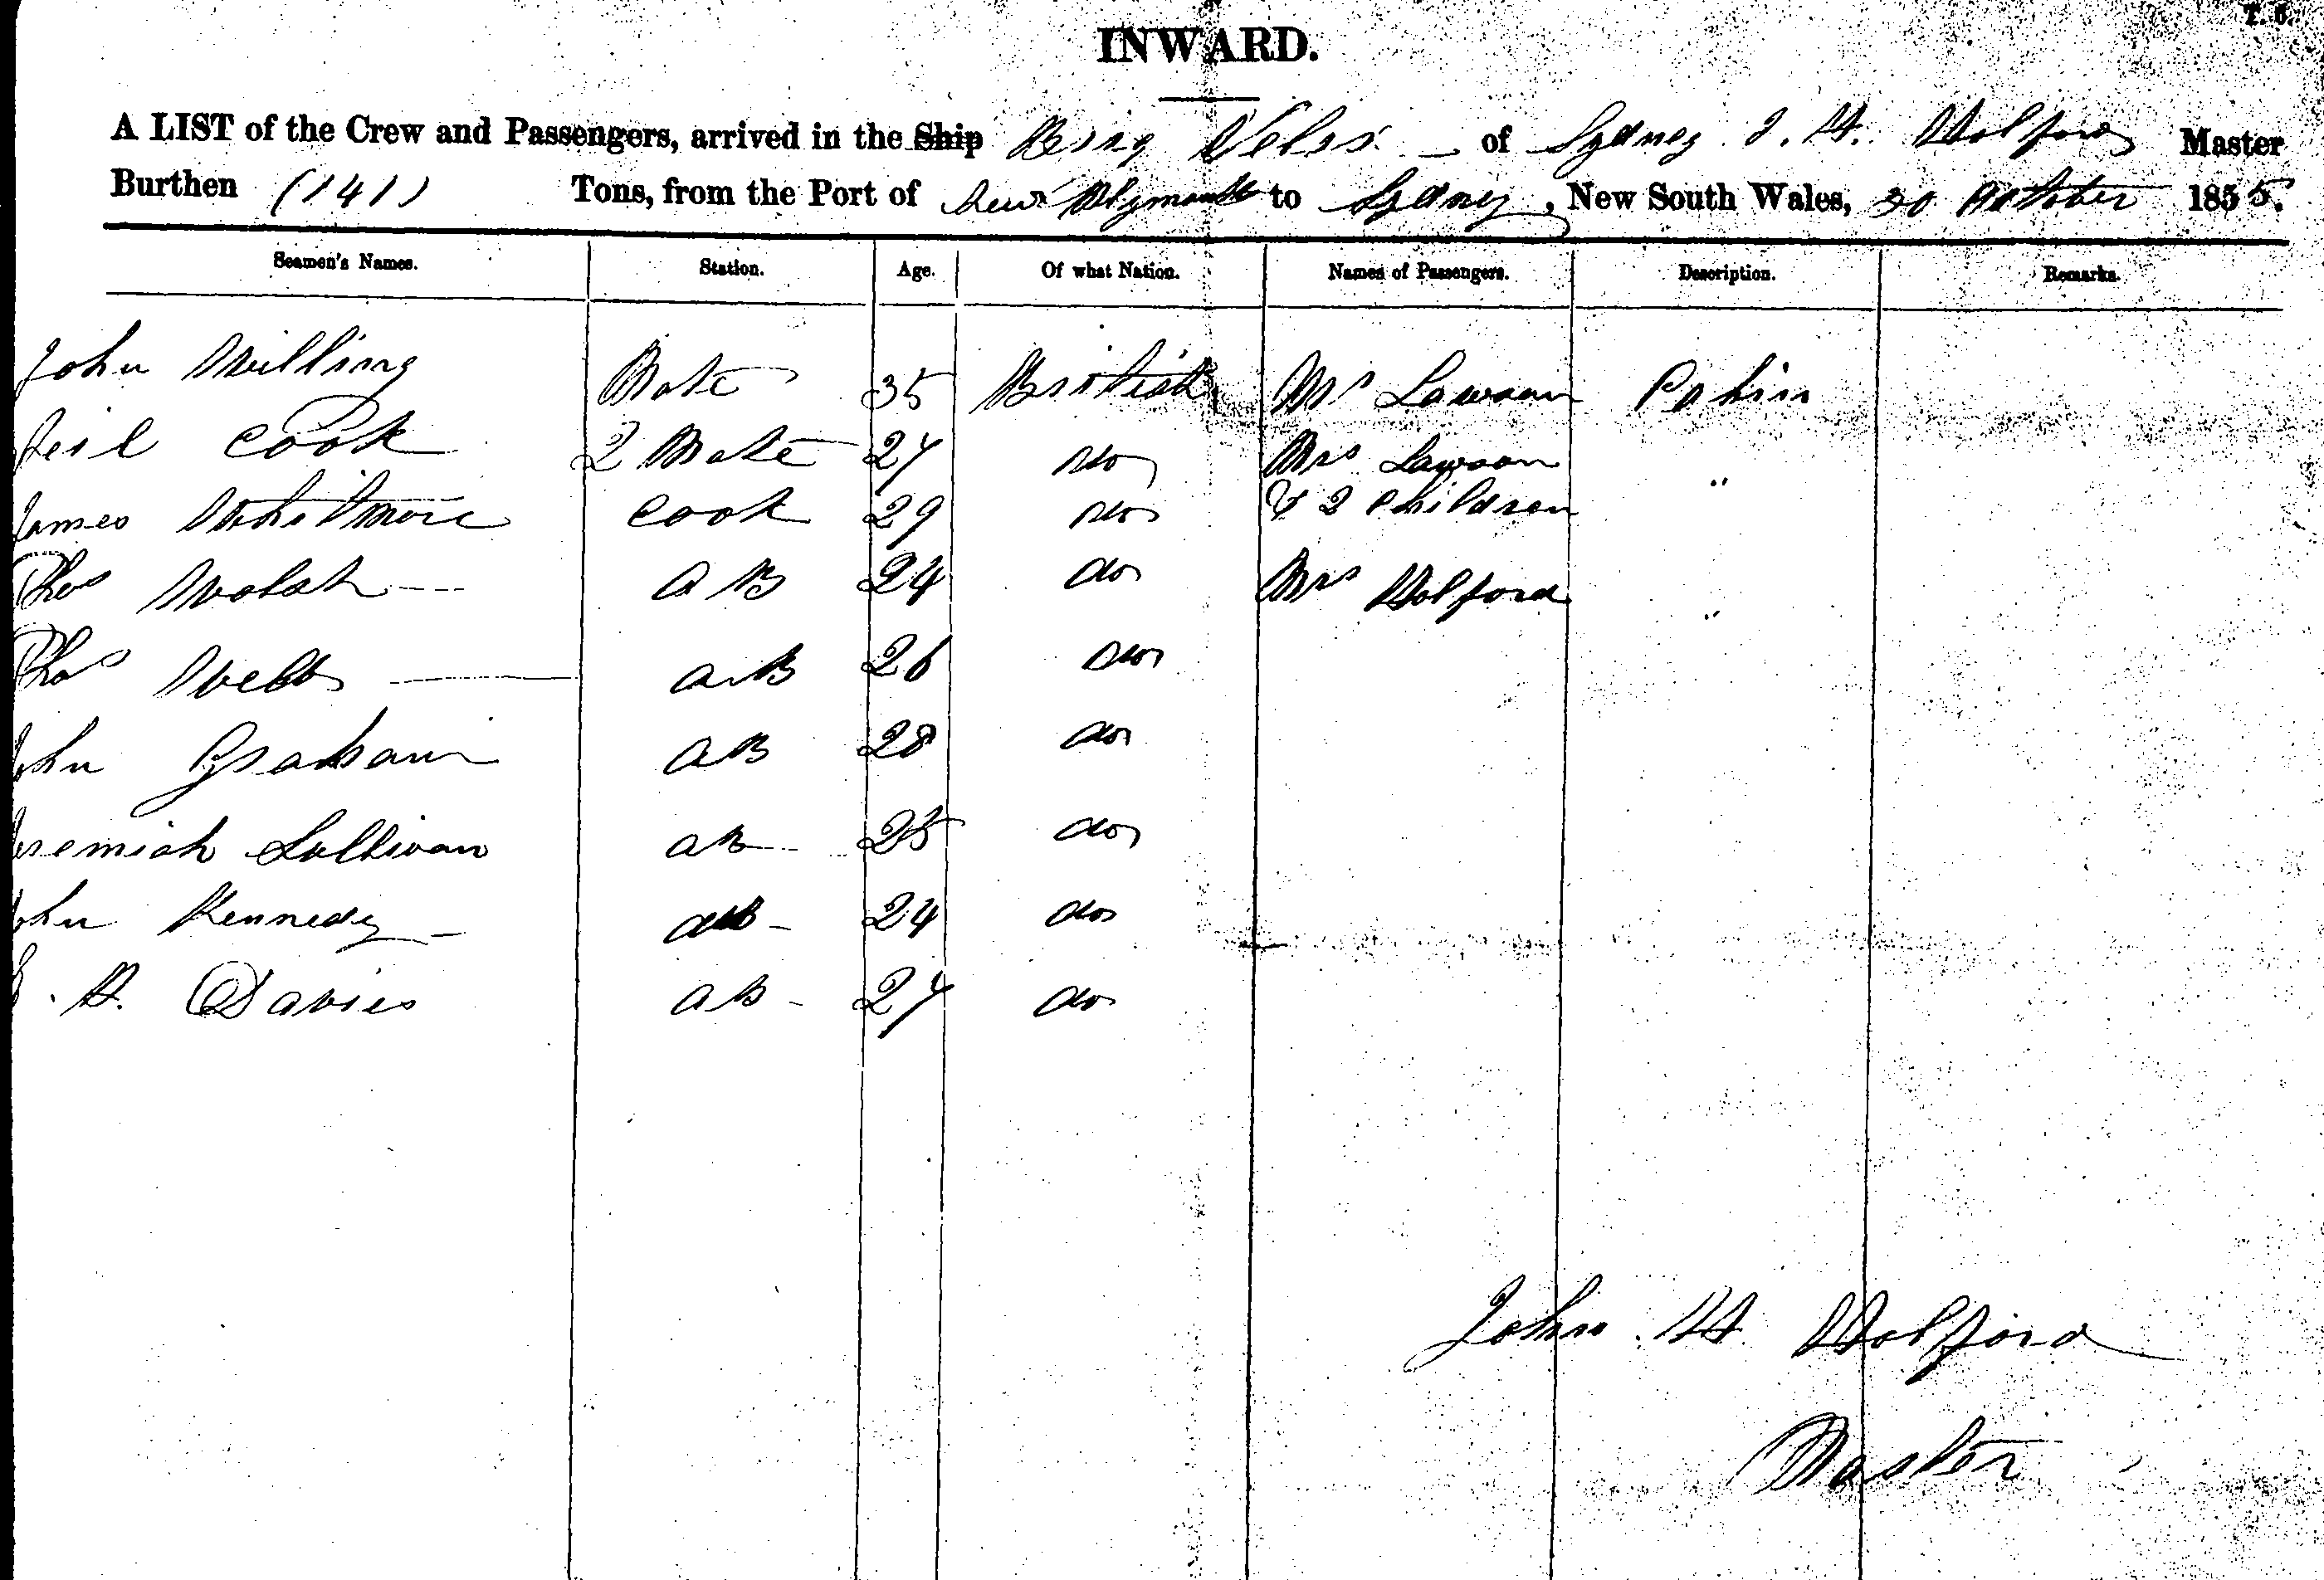 T. 6.
INWARD.
A LIST of the Crew and Passengers, arrived in the Ship Brig Velox of Sydney J. H. Wolford Master
Burthen (141) Tons, from the Port of New Plymouth to Sydney, New South Wales, 30 October 1855.
Seamen's Names. Station. Age. Of what Nation. Names of Passengers. Description. Remarks.
John Milling Mate 35 British Mr Lawson Cabin
Neil Cook 2 Mate 27 do Mrs Lawson
James Whitmore Cook 29 do & 2 Children "
Thos Walsh AB 24 do Mrs Wolford "
Thos Webb AB 26 do
John Graham AB 28 do
Jeremiah Sullivan AB 25 do
John Kennedy AB 24 do
H. Davies AB 27 do
John H Wolford
Master